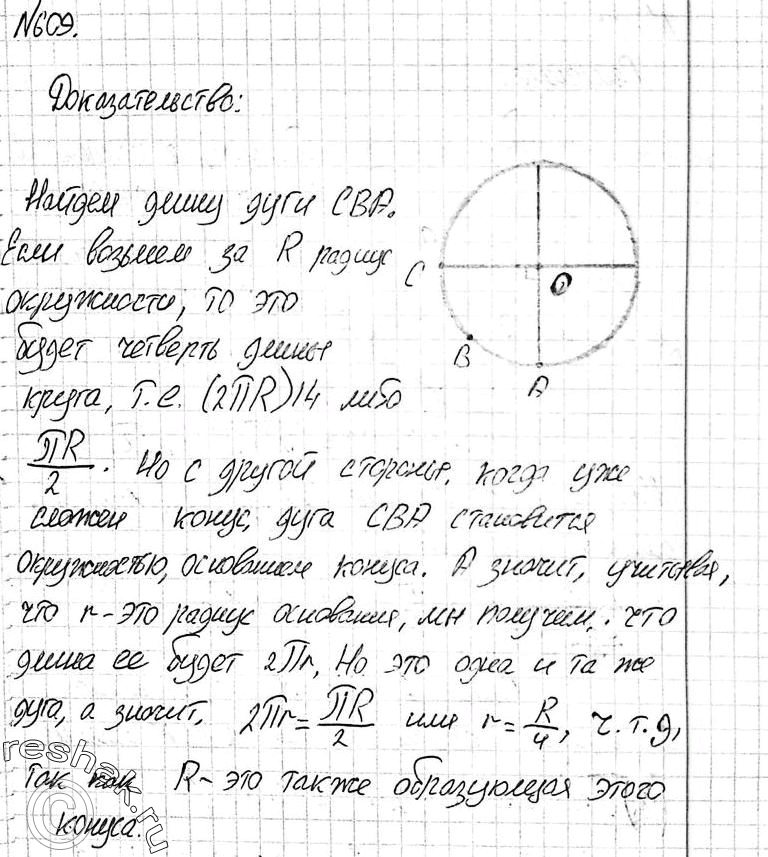 №609.
Доказательство:
Найдем длину дуги CBA.
Если возьмем за R радиус
окружности, то это
будет четверть длины
круга, т.е. (2ПR)/4 либо
C
O
B
A
ПR/2. Но с другой стороны, когда уже
сложен конус, дуга CBA становится
окружностью, основанием конуса. А значит, учитывая,
что r-это радиус основания, мы получем, что
длина ее будет 2Пr, Но это одна и та же
дуга, а значит, 2Пr=ПR/2 или r=R/4, ч.т.д,
Так как R- это также образующая этого
конуса.
reshak.ru